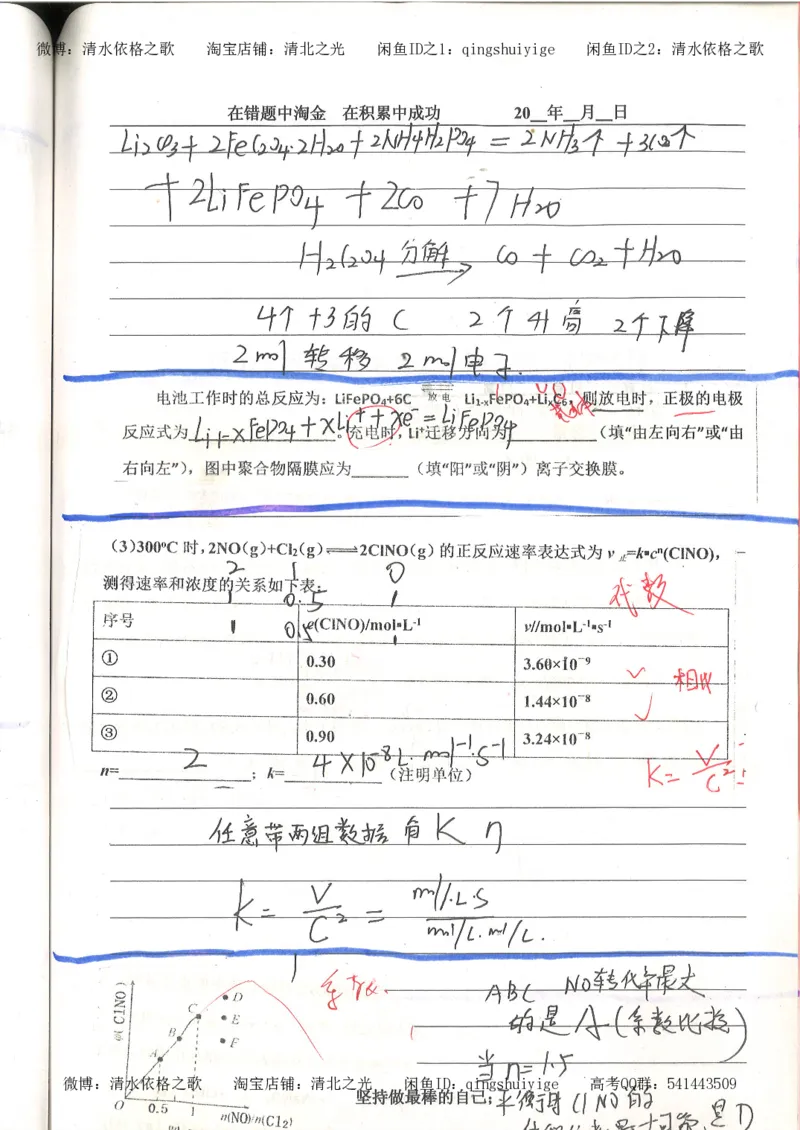 微博：清水依格之歌 淘宝店铺：清北之光 闲鱼ID之1：qingshuiyige 闲鱼ID之2：清水依格之歌
在错题中淘金 在积累中成功 20__年__月__日
Li2CO3+2FeC2O4·2H2O+2NH4H2PO4=2NH3↑+3CO2↑
+2LiFePO4+2CO+7H2O
H2C2O4 分解→ CO+CO2+H2O
4个+3的C 2个升高 2个下降
2mol 转移 2mol电子.
电池工作时的总反应为：LiFePO4+6C 放电 Li1-xFePO4+LixC6，则放电时，正极的电极
反应式为 Li1-xFePO4+xLi++xe-=LiFePO4。充电时，Li+迁移方向为________（填“由左向右”或“由
右向左”），图中聚合物隔膜应为______（填“阳”或“阴”）离子交换膜。
（3）300℃ 时，2NO（g）+Cl2（g）⇌2ClNO（g）的正反应速率表达式为 v正=k▪cn(ClNO)，
2 1 0
测得速率和浓度的关系如下表：
1 0.5 1
代数
序号 c(ClNO)/mol▪L-1 v/mol▪L-1▪s-1
1 0.5 1
① 0.30 3.60×10-9
相比
② 0.60 1.44×10-8
③ 0.90 3.24×10-8
n= 2 ；k= 4×10-8L·mol-1·s-1（注明单位）
K=V/C2
任意带两组数据有K n
K=V/C2=mol/L·S / mol/L·mol/L.
φ(ClNO)
D
C
E
B
F
A
系数.
ABC NO转化率最大
的是A(系数比指)
当n=1.5
微博：清水依格之歌 淘宝店铺：清北之光 闲鱼ID：qingshuiyige 高考QQ群：541443509
坚持做最棒的自己；
平衡时ClNO的
O 0.5 1 n(NO)/n(Cl2)
是D